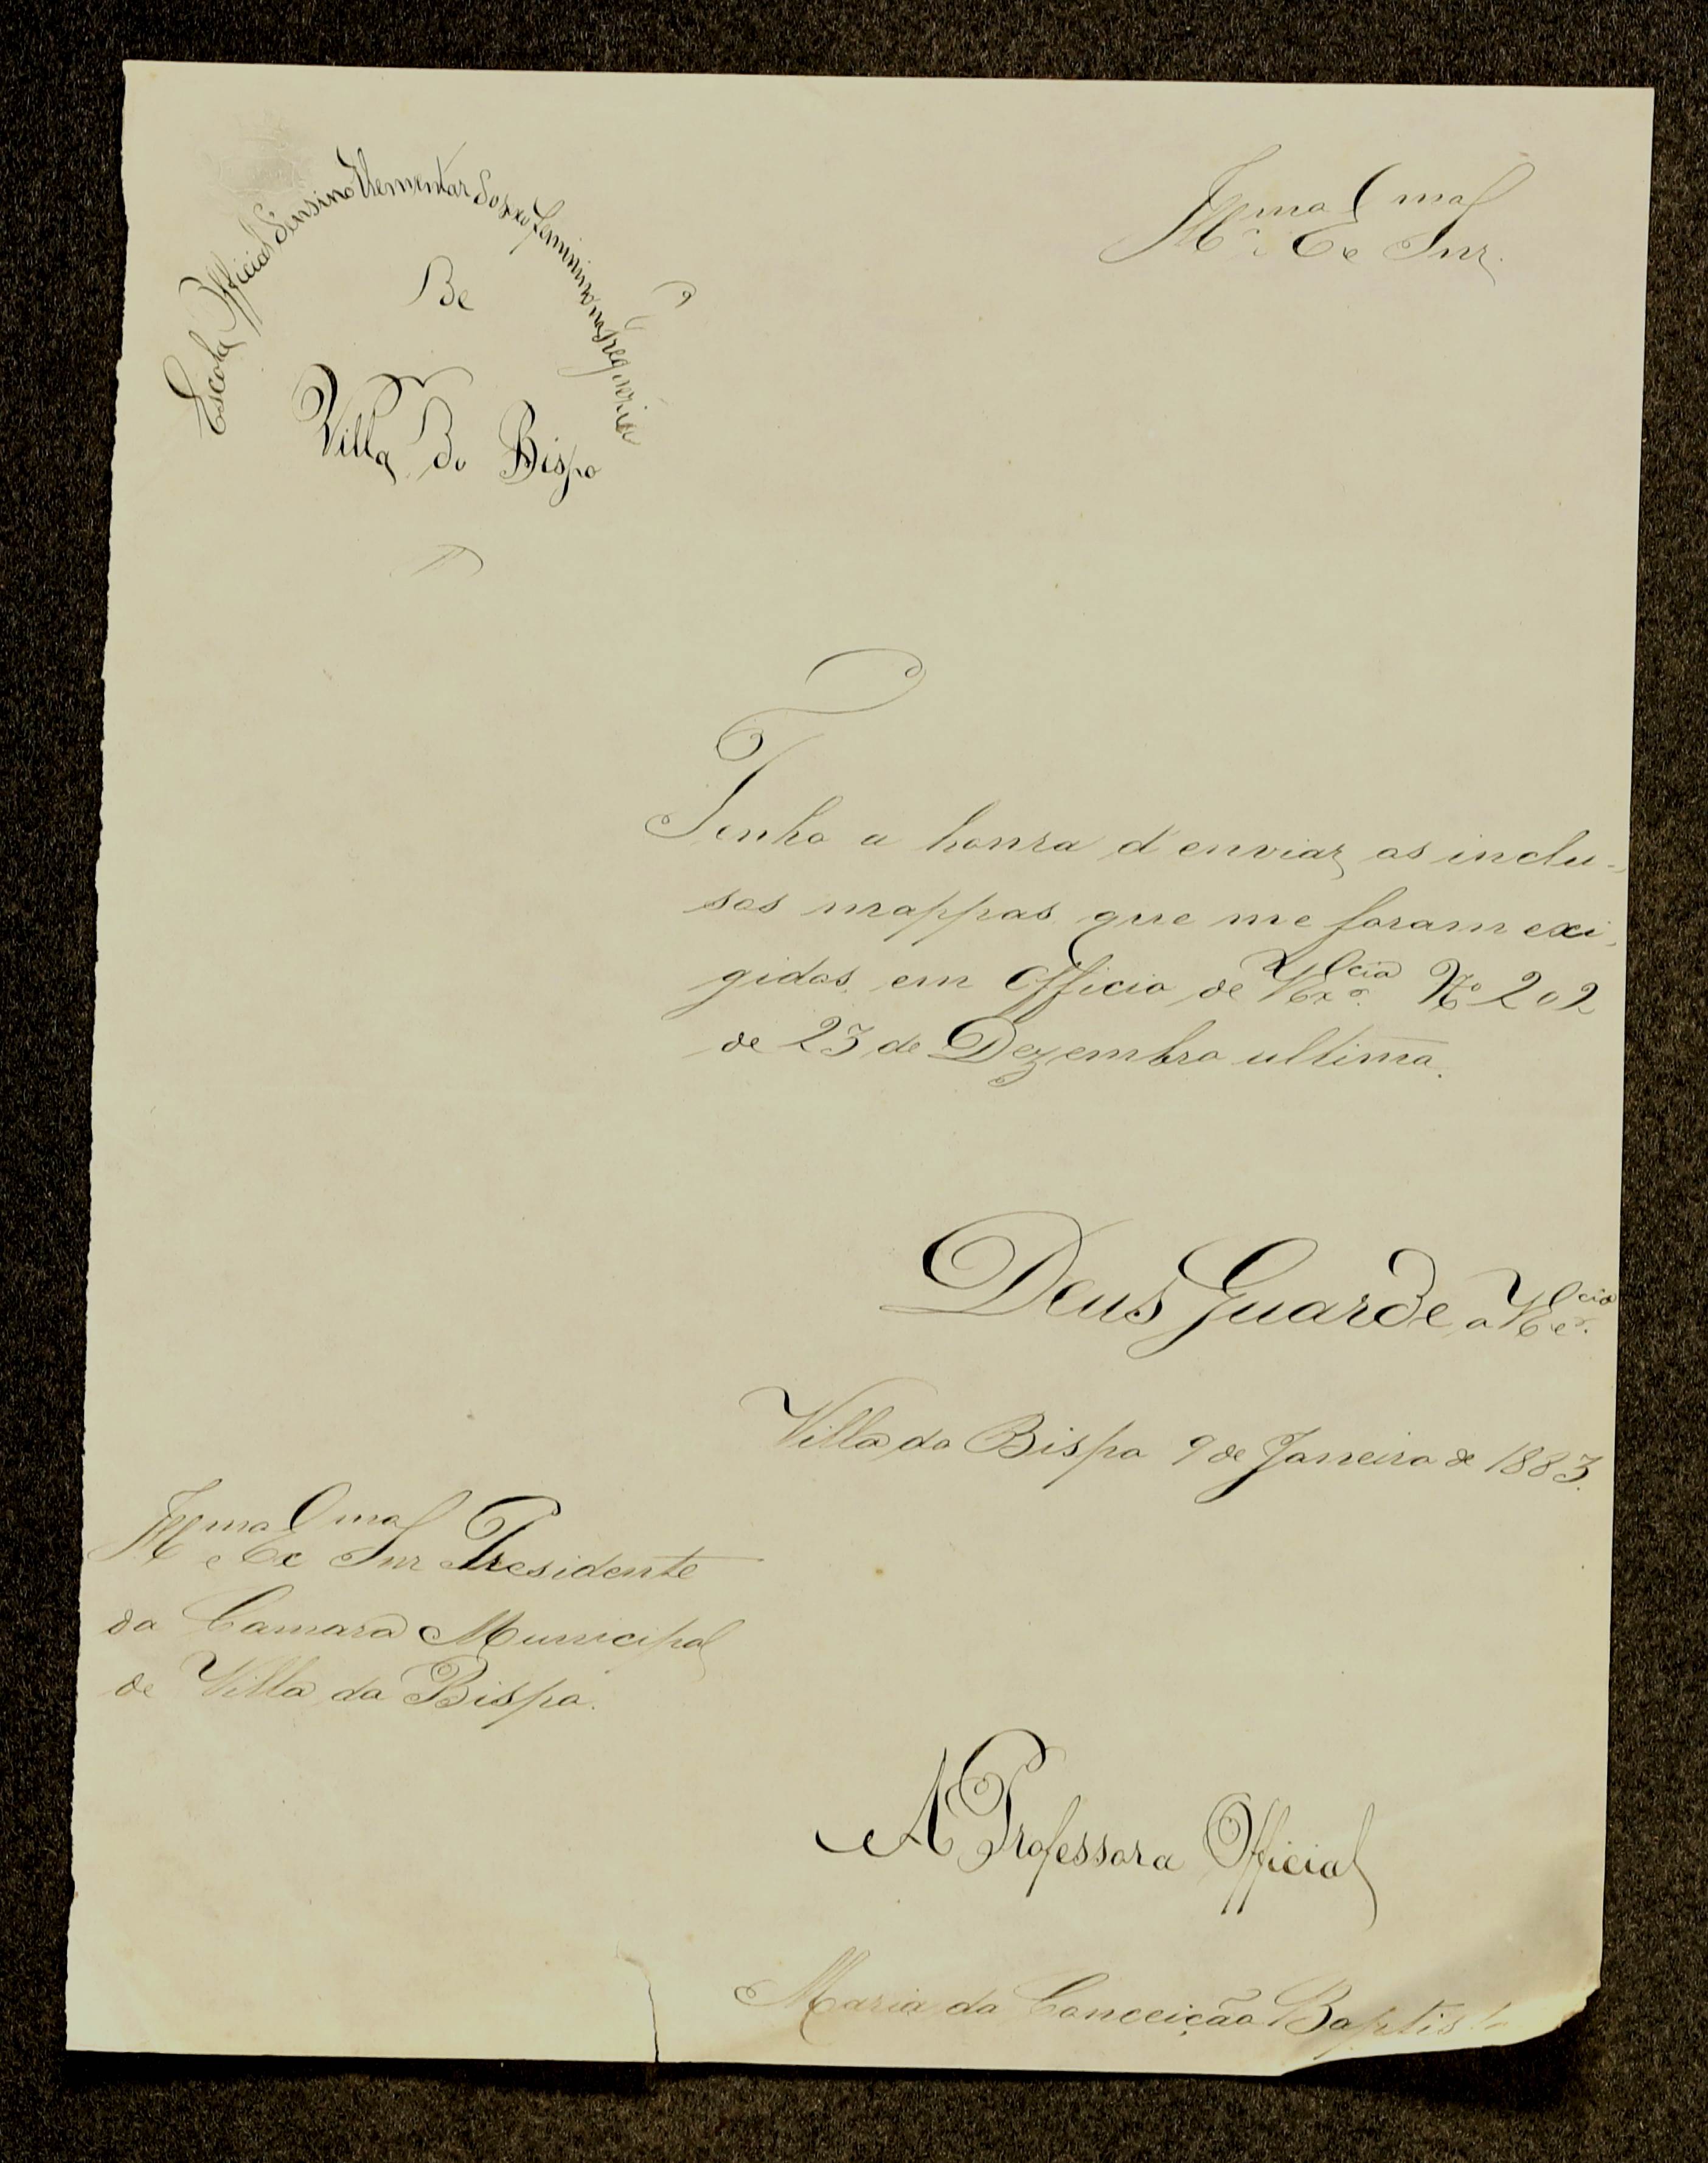 Escola Official d'ensino Elementar do sexo feminino na Freguezia
De
Villa do Bispo
Ill.mo Ex.mo Snr.
Tenho a honra d'enviar os inclu-
sos mappas que me foram exi-
gidos em Officio de V. Ex.cia Nº 202
de 23 de Dezembro ultimo.
Deus Guarde a V. Ex.cia
Villa do Bispo 9 de Janeiro de 1883.
Ill.mo e Ex.mo Snr Presidente
da Camara Municipal
de Villa do Bispo.
A Professora Official
Maria da Conceição Baptista